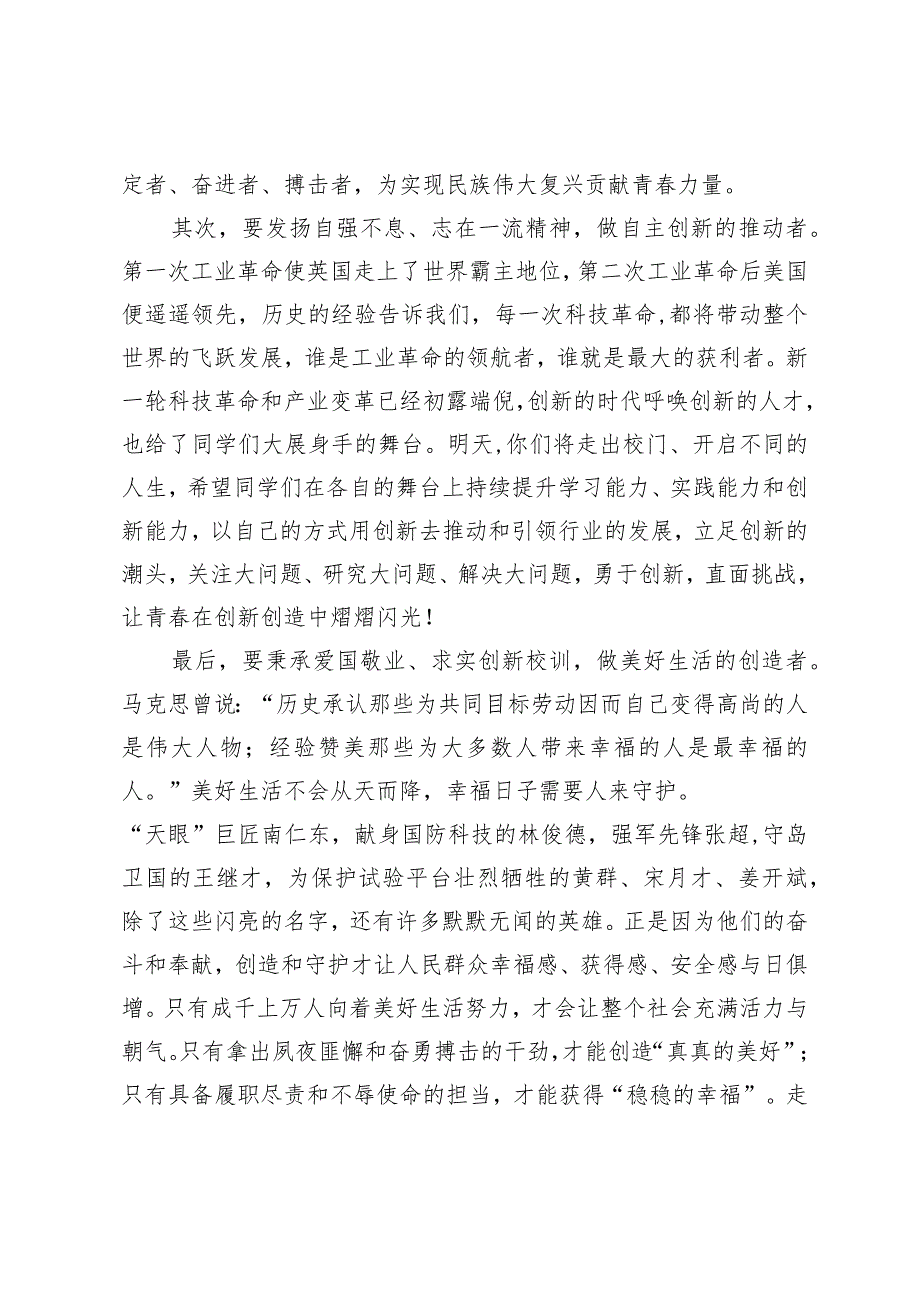 定者、奋进者、搏击者，为实现民族伟大复兴贡献青春力量。
其次，要发扬自强不息、志在一流精神，做自主创新的推动者。
第一次工业革命使英国走上了世界霸主地位，第二次工业革命后美国
便遥遥领先，历史的经验告诉我们，每一次科技革命,都将带动整个
世界的飞跃发展，谁是工业革命的领航者，谁就是最大的获利者。新
一轮科技革命和产业变革已经初露端倪,创新的时代呼唤创新的人才，
也给了同学们大展身手的舞台。明天,你们将走出校门、开启不同的
人生，希望同学们在各自的舞台上持续提升学习能力、实践能力和创
新能力，以自己的方式用创新去推动和引领行业的发展，立足创新的
潮头，关注大问题、研究大问题、解决大问题，勇于创新，直面挑战，
让青春在创新创造中熠熠闪光！
最后，要秉承爱国敬业、求实创新校训，做美好生活的创造者。
马克思曾说：“历史承认那些为共同目标劳动因而自己变得高尚的人
是伟大人物；经验赞美那些为大多数人带来幸福的人是最幸福的
人。”美好生活不会从天而降，幸福日子需要人来守护。
“天眼”巨匠南仁东，献身国防科技的林俊德，强军先锋张超,守岛
卫国的王继才，为保护试验平台壮烈牺牲的黄群、宋月才、姜开斌，
除了这些闪亮的名字，还有许多默默无闻的英雄。正是因为他们的奋
斗和奉献，创造和守护才让人民群众幸福感、获得感、安全感与日俱
增。只有成千上万人向着美好生活努力，才会让整个社会充满活力与
朝气。只有拿出夙夜匪懈和奋勇搏击的干劲,才能创造“真真的美好”；
只有具备履职尽责和不辱使命的担当，才能获得“稳稳的幸福”。走